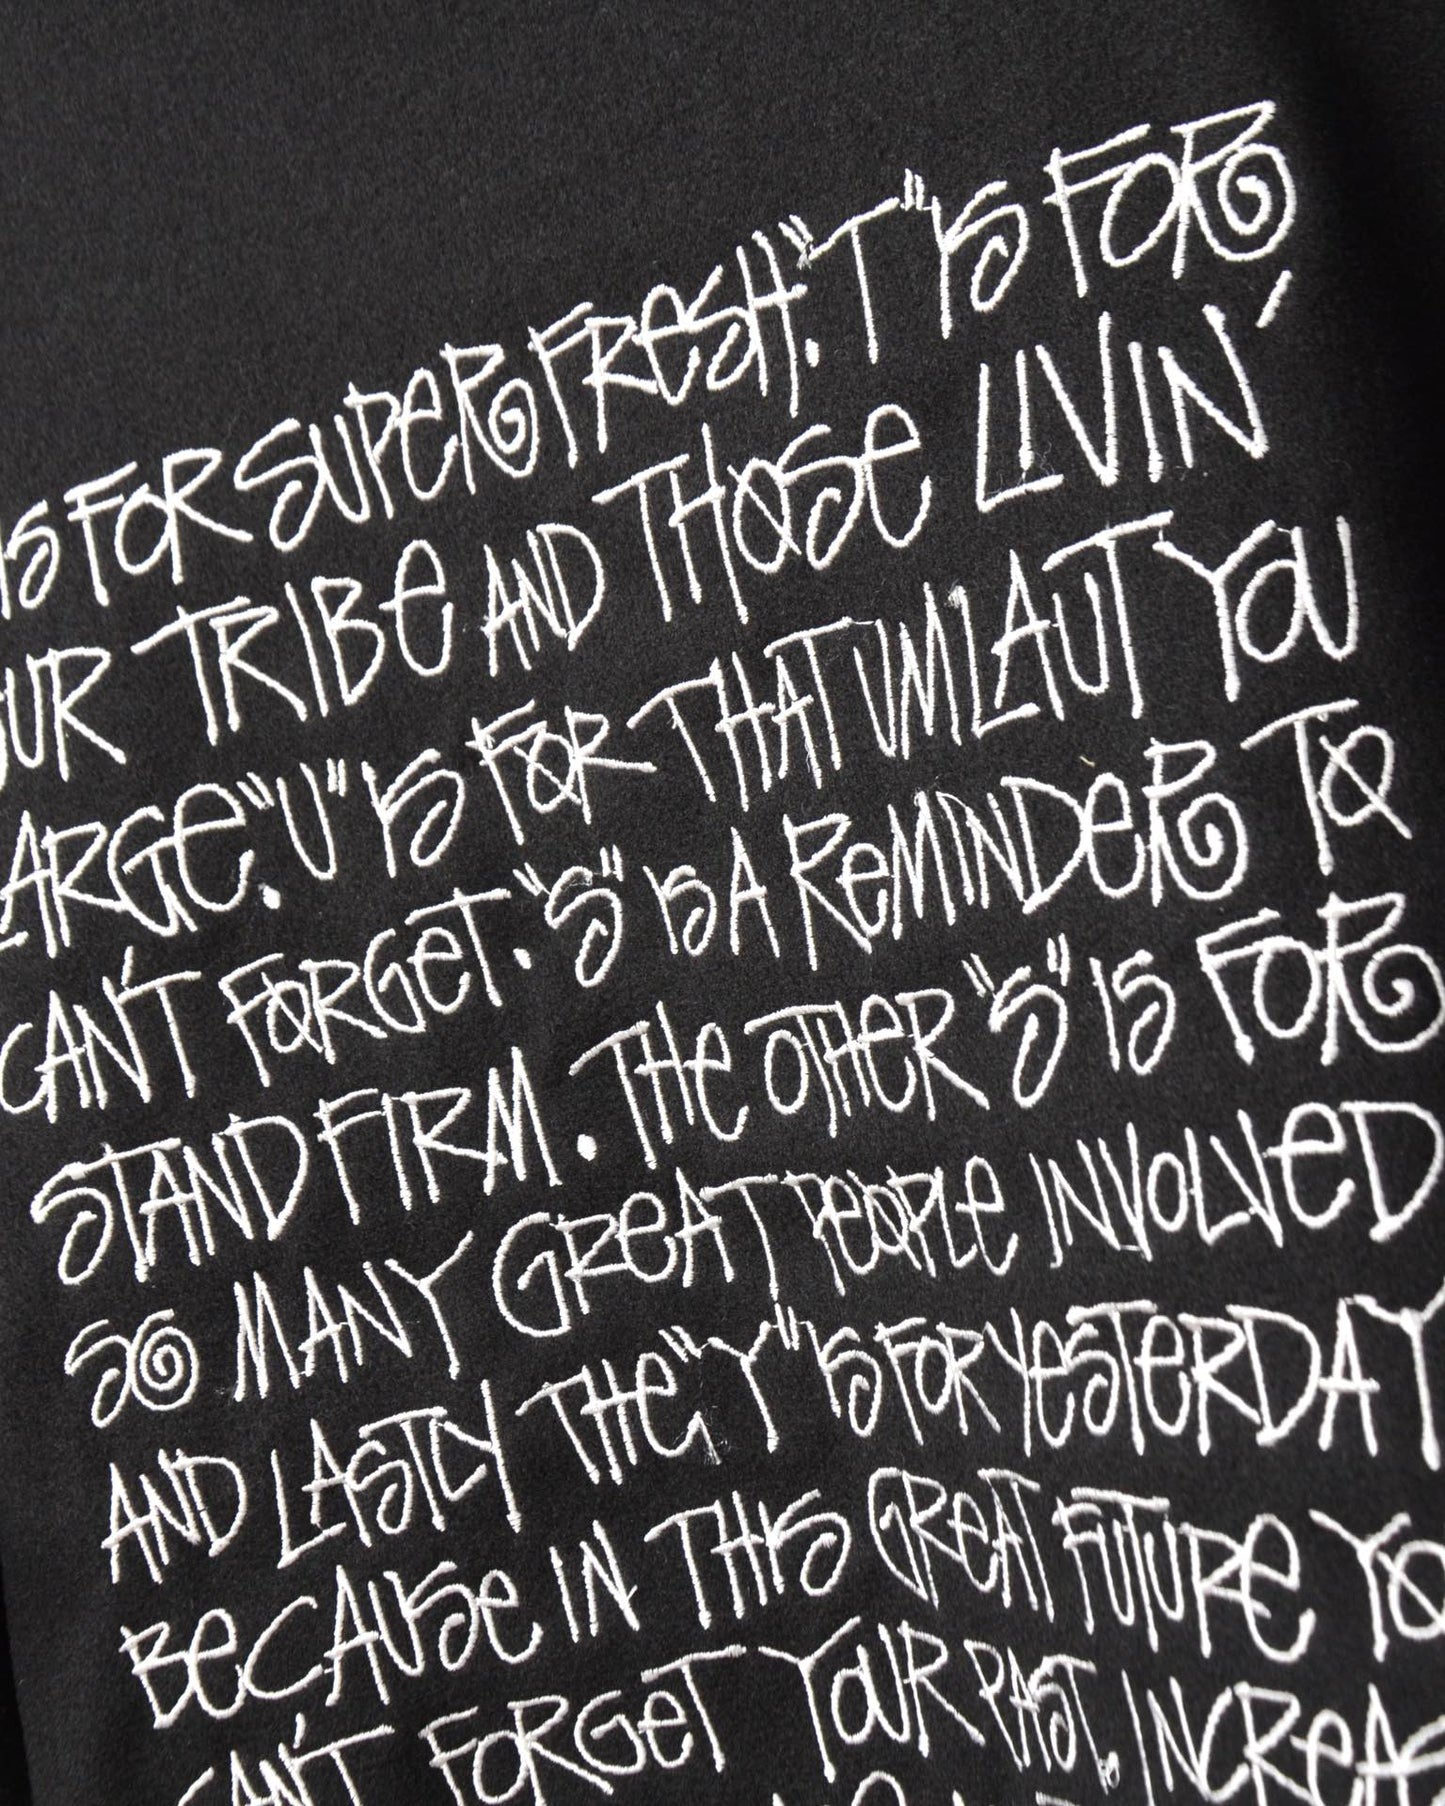 IS FOR SUPER FRESH. "T" IS FOR
OUR TRIBE AND THOSE LIVIN'
LARGE. "U" IS FOR THAT UMLAUT YOU
CAN'T FORGET. "S" IS A REMINDER TO
STAND FIRM. THE OTHER "S" IS FOR
SO MANY GREAT PEOPLE INVOLVED
AND LASTLY THE "Y" IS FOR YESTERDAY
BECAUSE IN THIS GREAT FUTURE YO
CAN'T FORGET YOUR PAST. INCREAS